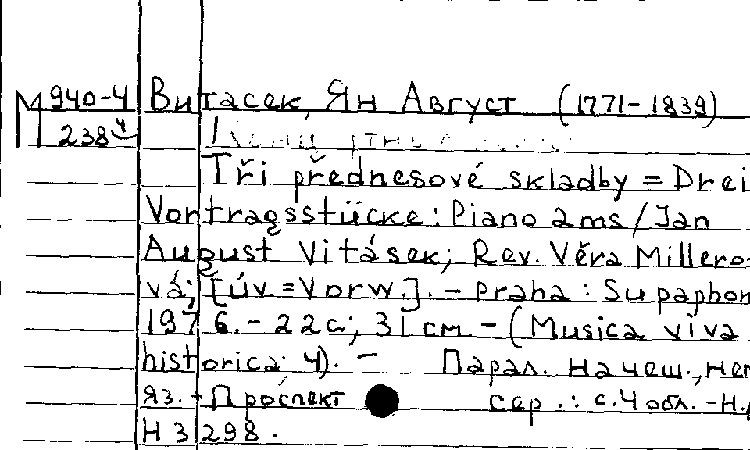 М 940-4 Витасек, Ян Август (1771-1839)
238
Tři přednesové skladby = Drei
Vortragsstücke: Piano 2ms / Jan
August Vitásek; Rev. Věra Millero-
vá; [úv. = Vorw.]. - Praha: Supraphon
1976. - 22 с.; 31 см - (Musica viva
historica; 4). - Парал. на чеш., нем
яз. - Проспект сер.: с. 4 обл. - Н.
Н 3 298.